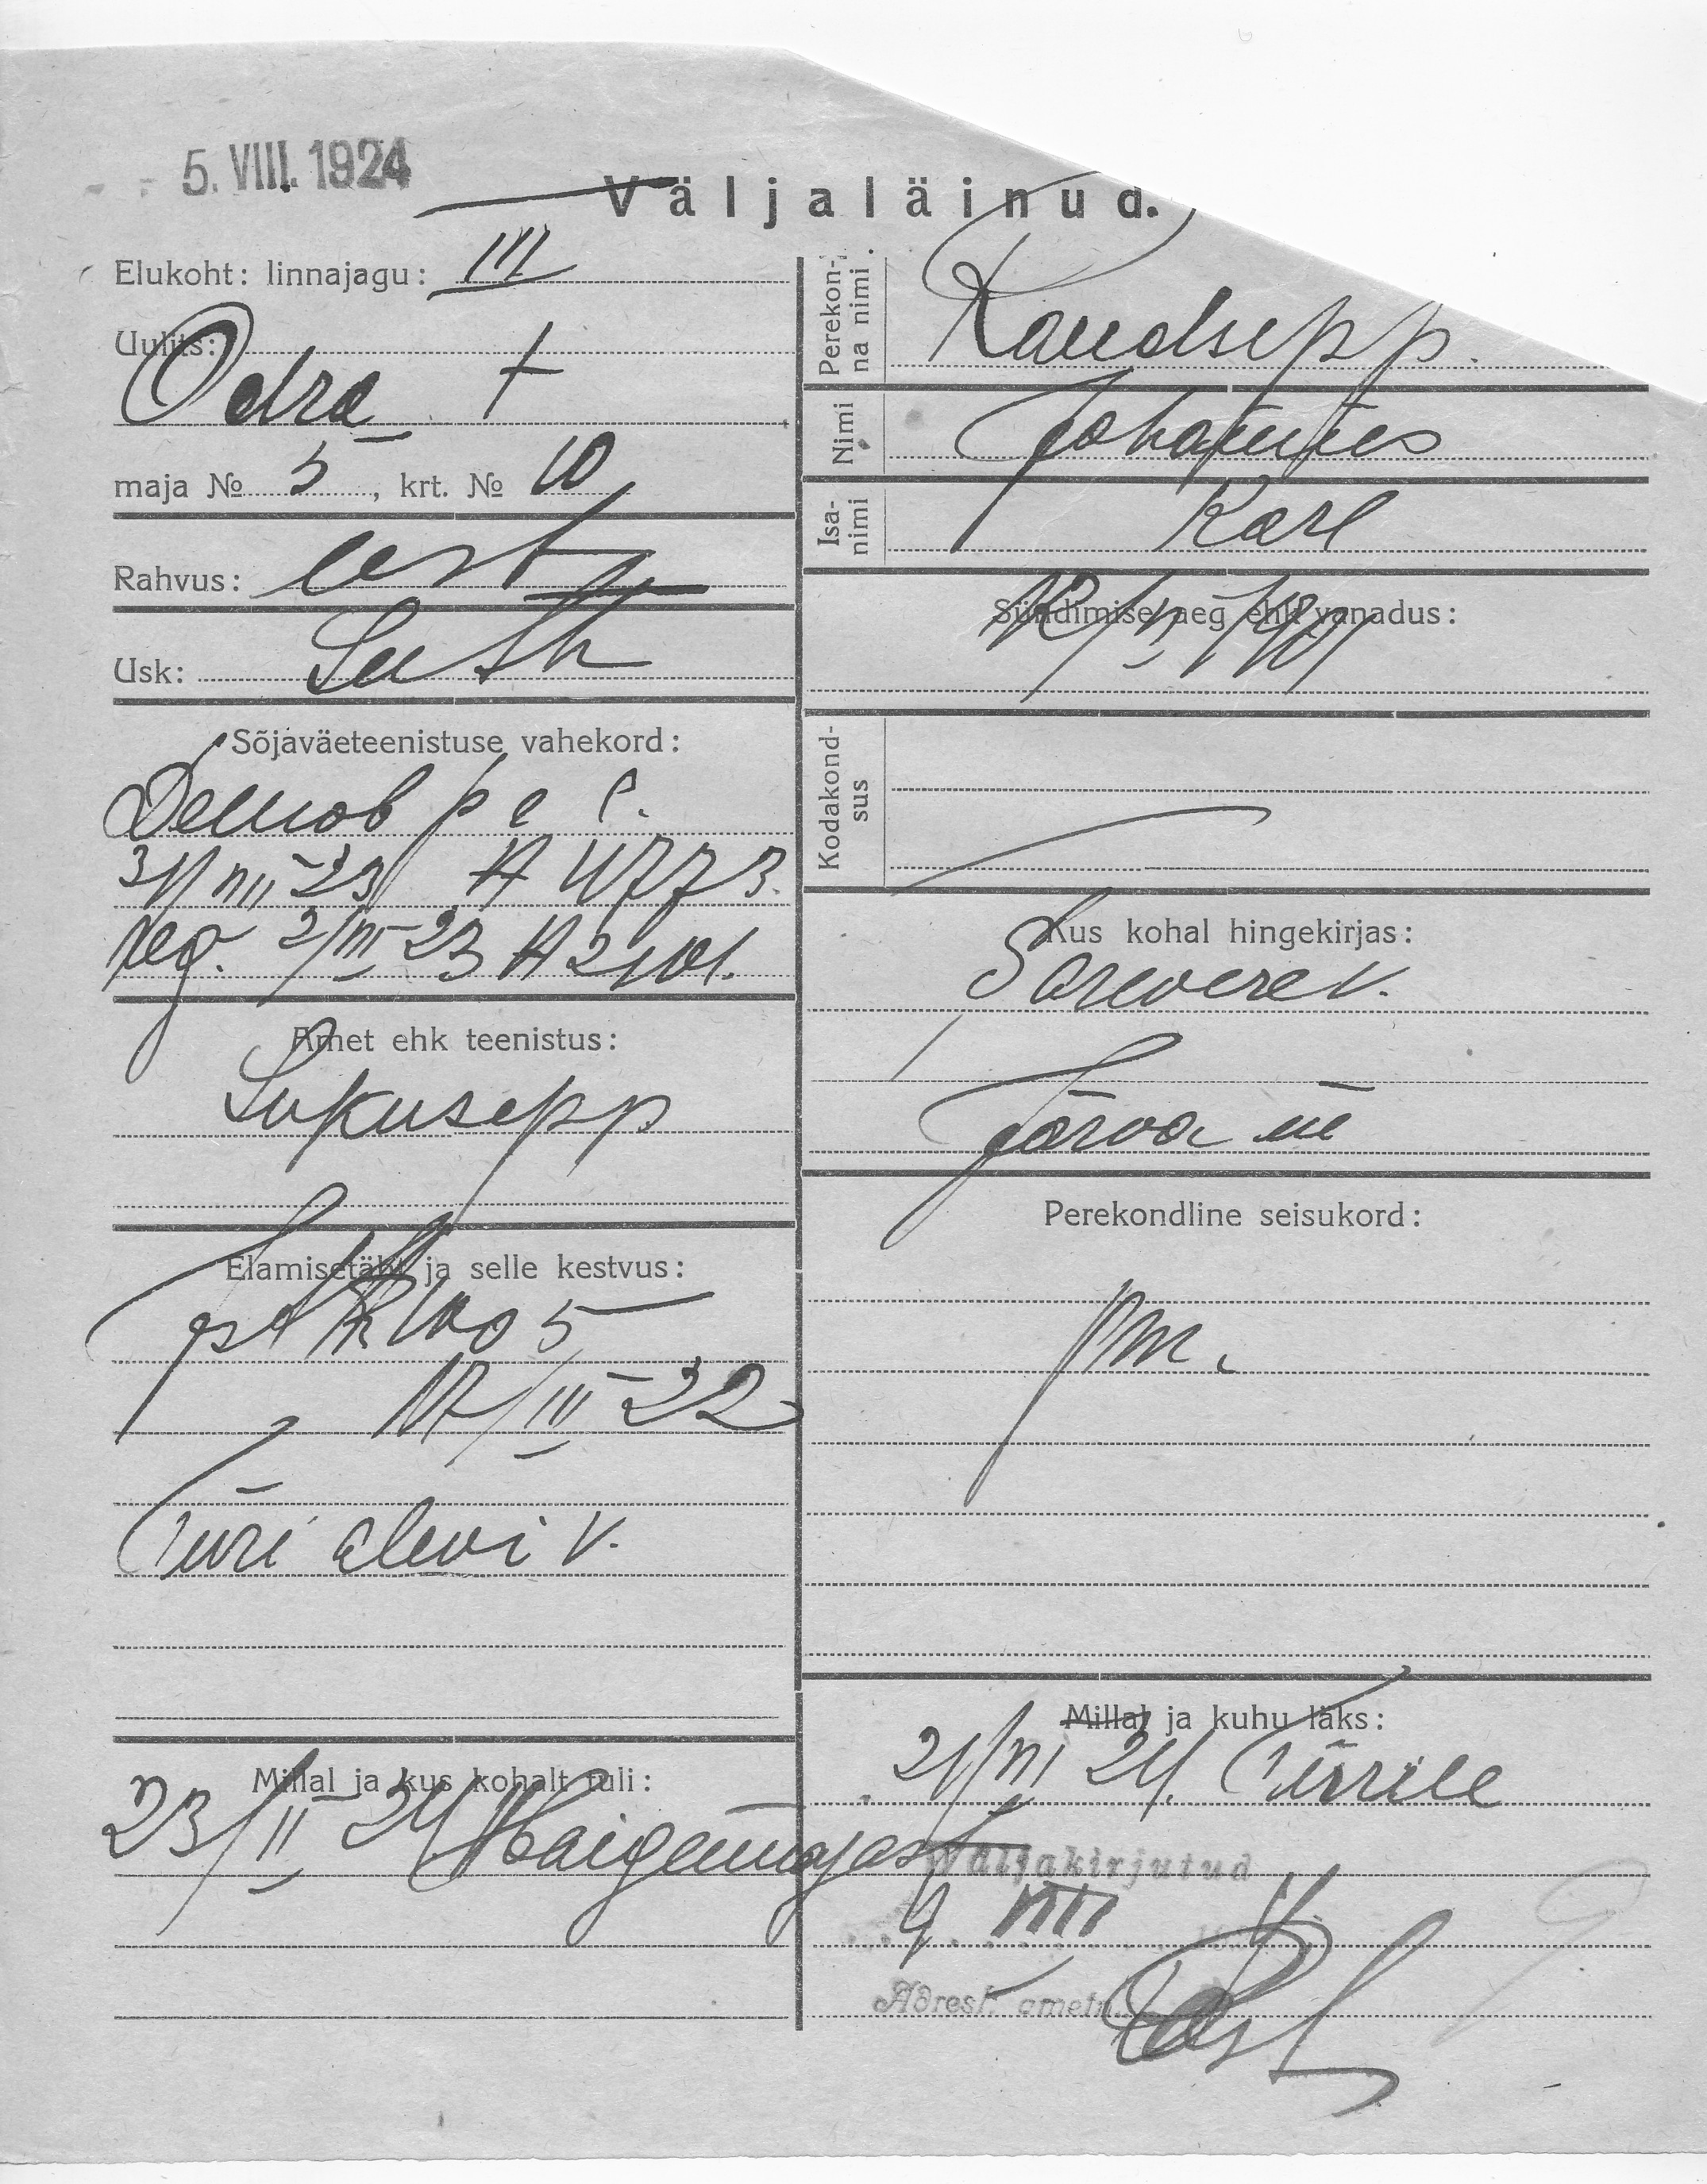 5. VIII. 1924
Väljaläinud.
Elukoht: linnajagu: III
Uulits:
Odra
maja № 5, krt. № 10
Rahvus: eest
Usk: Luth
Sõjaväeteenistuse vahekord:
Demob
reg.
Amet ehk teenistus:
Lukusepp
Elamisetäht ja selle kestvus:
17/III 22
Türi alevi v.
Millal ja kus kohalt tuli:
23/II 24 Haigemajast
Perekonna nimi
Kaudsepp.
Nimi
Johannes
Isanimi
Karl
Sündimise aeg ehk vanadus:
Kodakondsus
Kus kohal hingekirjas:
Särevere v.
Järva m
Perekondline seisukord:
Millal ja kuhu läks:
24. Türile
Väljakirjutud
9. VIII
Adrest. ametn.